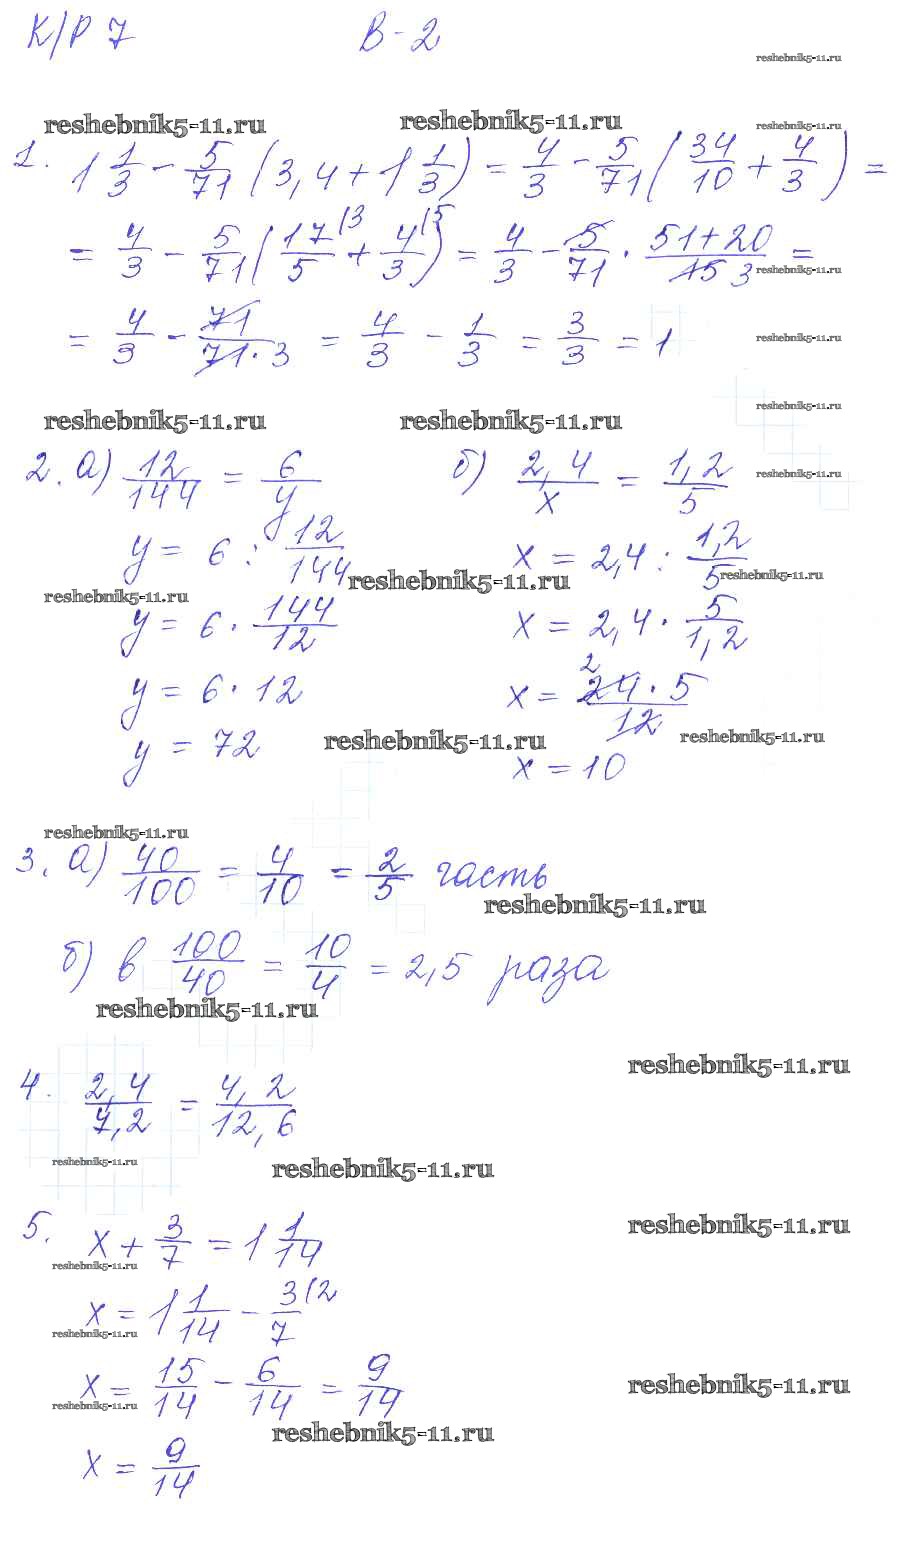 К/Р 7 В-2
reshebnik5-11.ru
reshebnik5-11.ru reshebnik5-11.ru reshebnik5-11.ru
1. 1 1/3 - 5/71 (3,4 + 1 1/3) = 4/3 - 5/71 (34/10 + 4/3) =
= 4/3 - 5/71 (17/5 (3 + 4/3 (5) = 4/3 - 5/71 · 51+20/15 3 =
reshebnik5-11.ru
= 4/3 - 71/71·3 = 4/3 - 1/3 = 3/3 = 1
reshebnik5-11.ru
reshebnik5-11.ru
reshebnik5-11.ru reshebnik5-11.ru
2. а) 12/144 = 6/y б) 2,4/x = 1,2/5
reshebnik5-11.ru
y = 6 : 12/144 x = 2,4 : 1,2/5
reshebnik5-11.ru reshebnik5-11.ru
reshebnik5-11.ru
y = 6 · 144/12 x = 2,4 · 5/1,2
y = 6 · 12 x = 2 24 · 5/12
y = 72 reshebnik5-11.ru reshebnik5-11.ru
x = 10
reshebnik5-11.ru
3. а) 40/100 = 4/10 = 2/5 часть
reshebnik5-11.ru
б) в 100/40 = 10/4 = 2,5 раза
reshebnik5-11.ru
reshebnik5-11.ru
4. 2,4/7,2 = 4,2/12,6
reshebnik5-11.ru reshebnik5-11.ru
reshebnik5-11.ru
5. x + 3/7 = 1 1/14
reshebnik5-11.ru
x = 1 1/14 - 3/7 (2
reshebnik5-11.ru
x = 15/14 - 6/14 = 9/14
reshebnik5-11.ru
reshebnik5-11.ru
reshebnik5-11.ru
x = 9/14